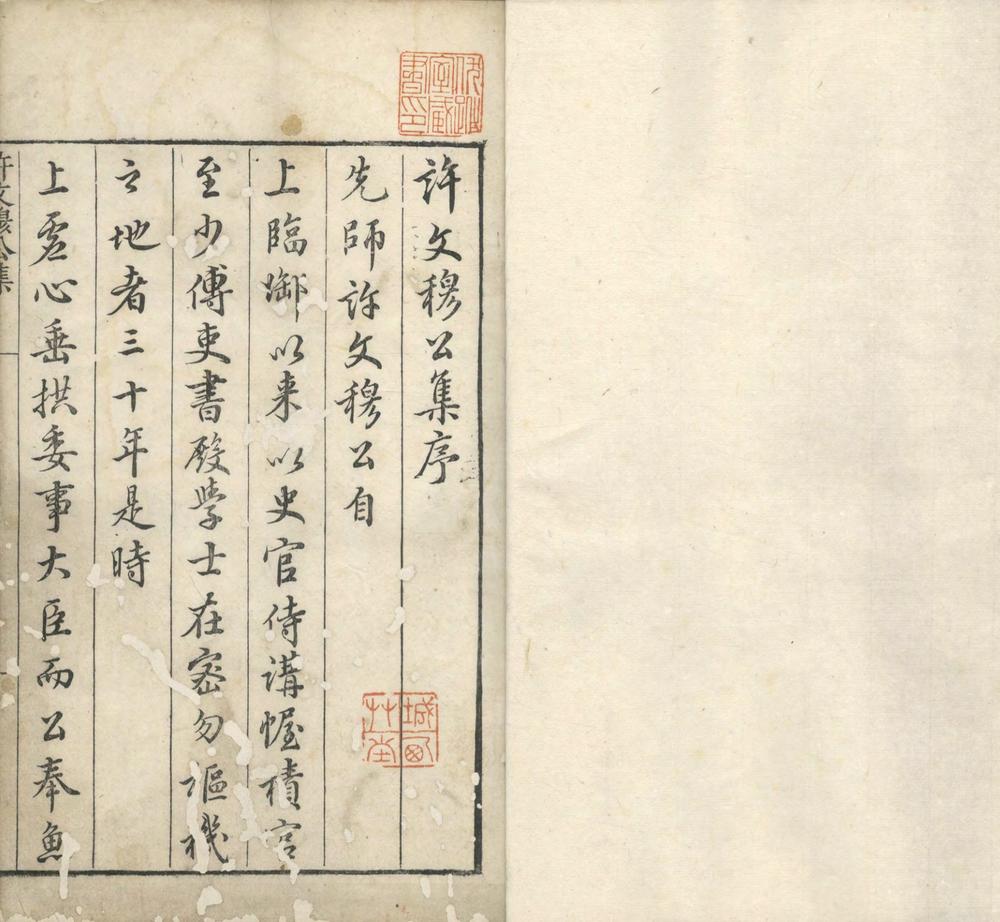 許文穆公集序
先師許文穆公自
上臨御以来以史官侍講幄積官
至少傅吏書殿學士在密勿樞機
之地者三十年是時
上虛心垂拱委事大臣而公奉魚
許文穆公集
城西
艸堂